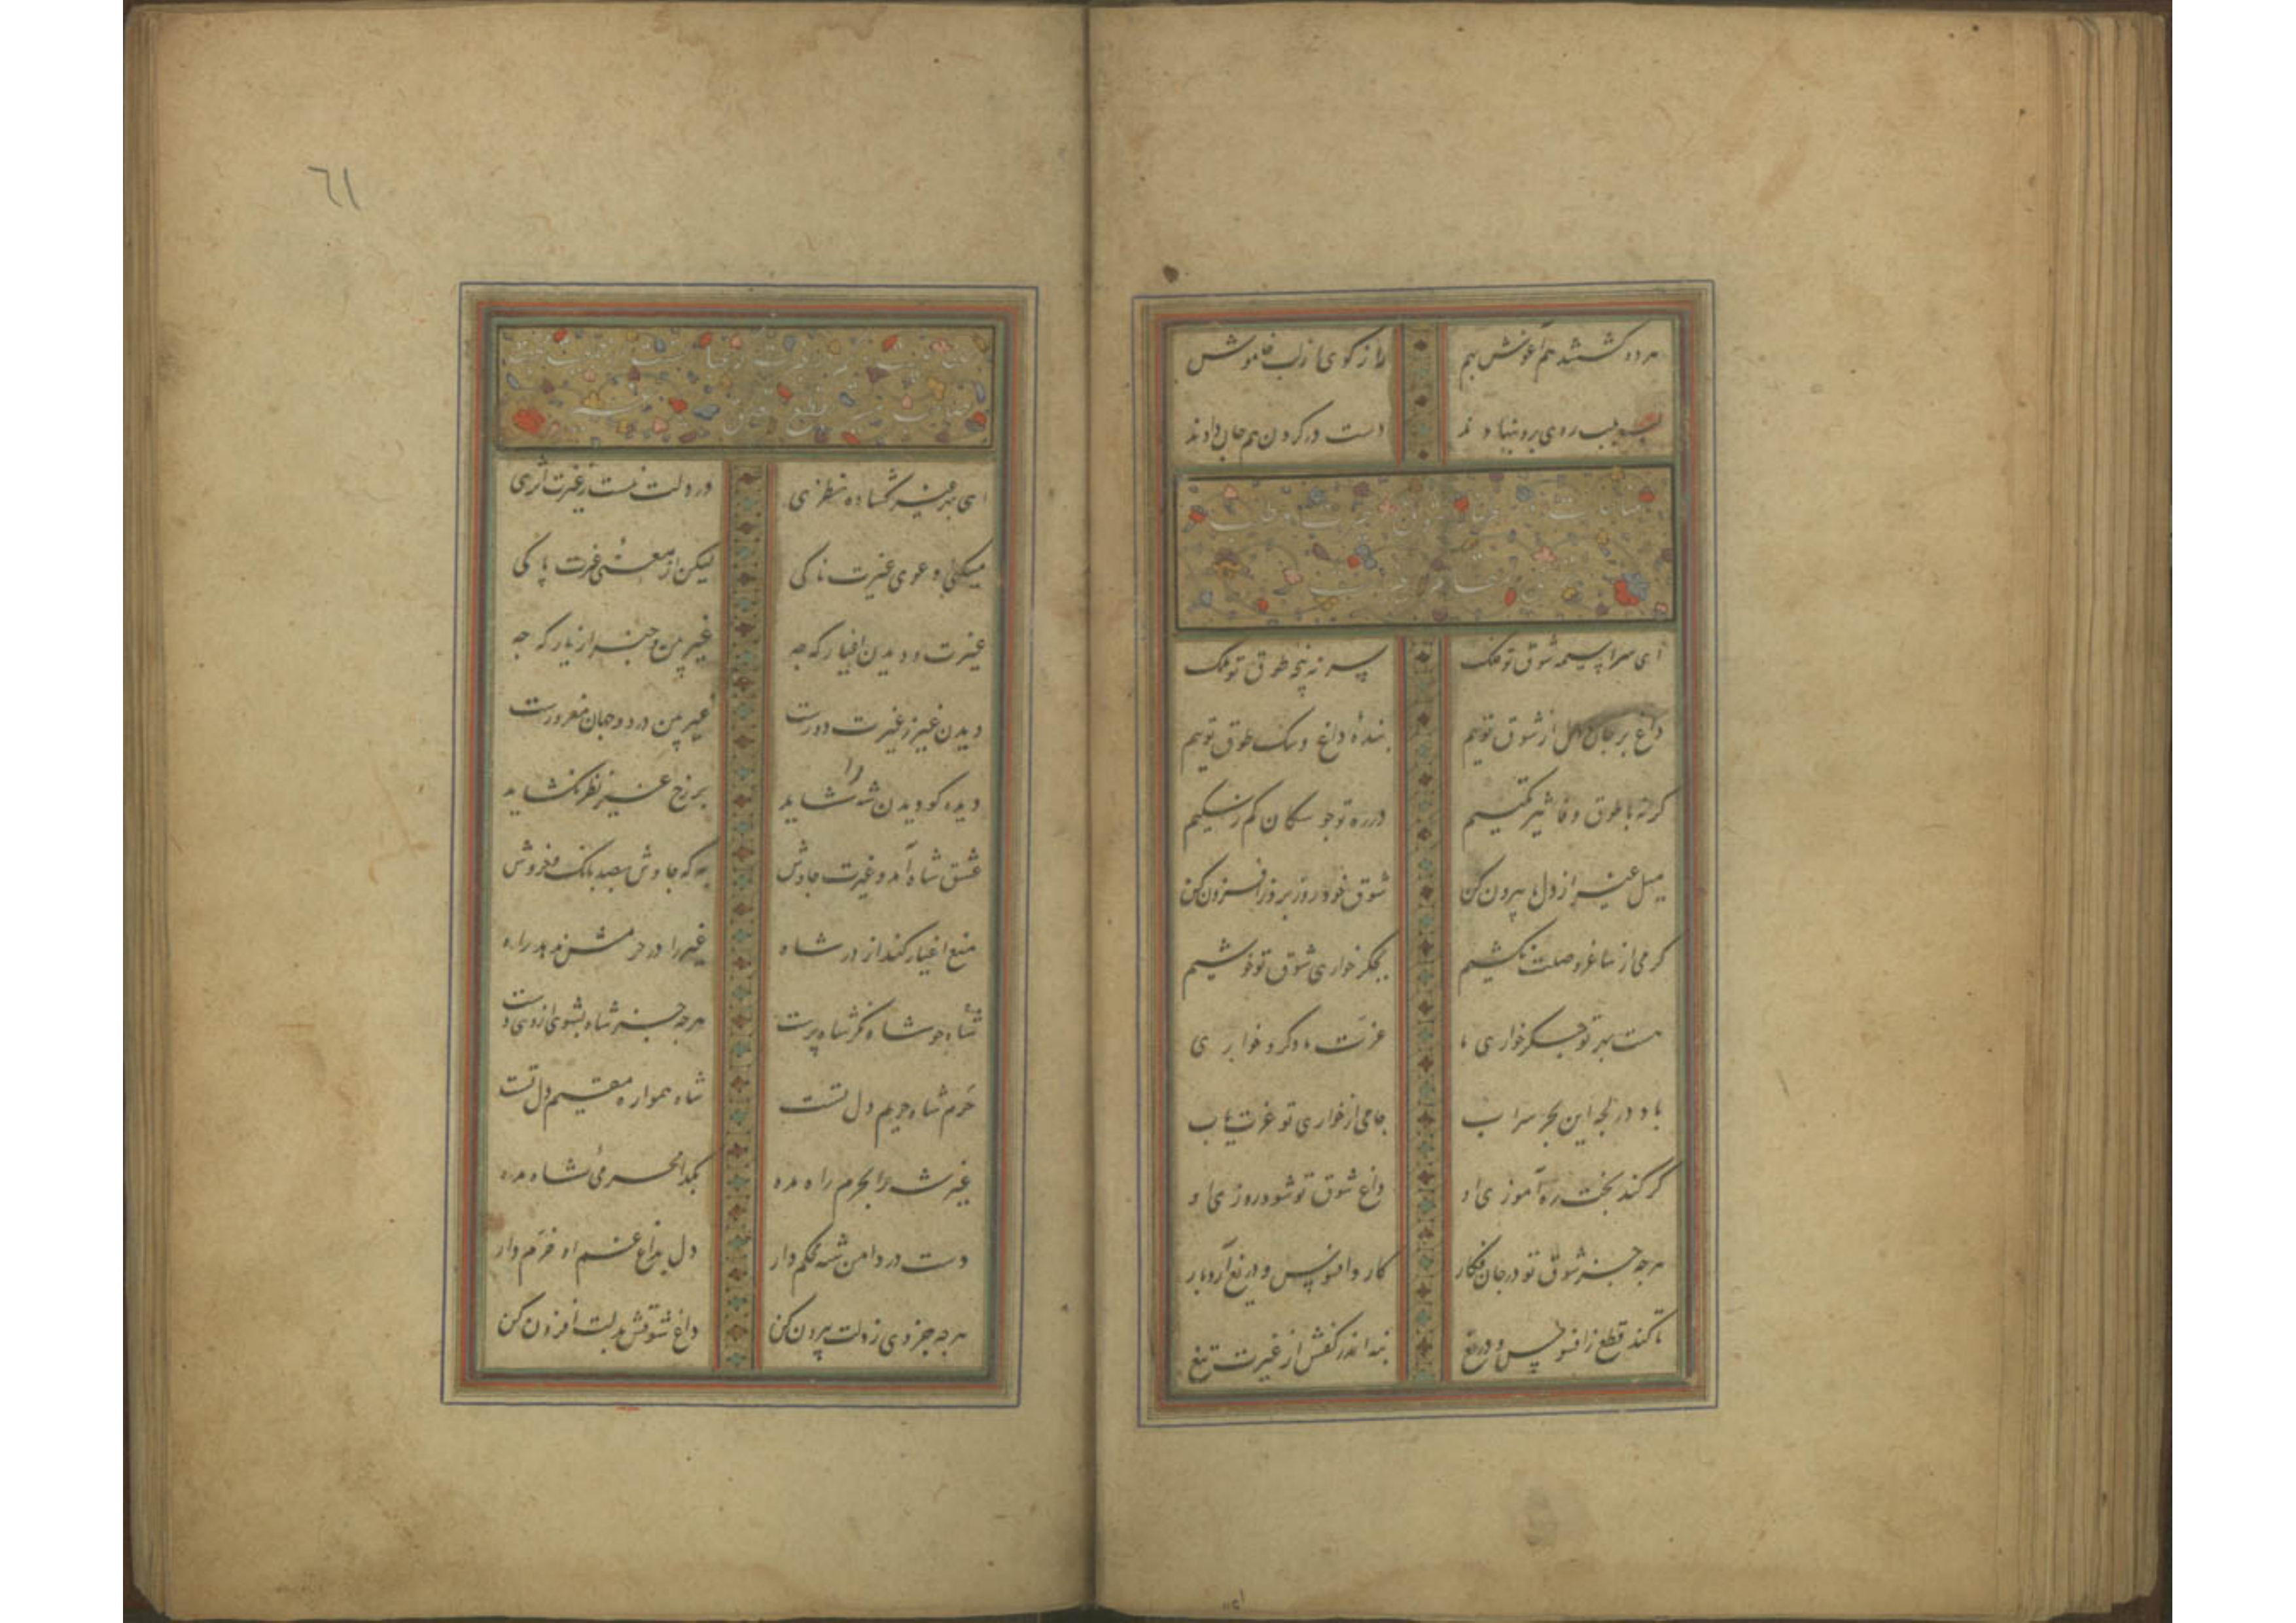 هر دو گشتند هم آغوش بهم راز گوی از لب خاموش
لب بلب روی برو بنهادند دست در گردن هم جان دادند
مناجات در
ای سراسیمه شوق تو ملک بسر نه چنبر طوق تو فلک
داغ بر جان و دل از شوق توییم بندهٔ داغ و سگ طوق توییم
گر نه با طوق وفا شیر تکیم در ره تو چو سگان کم ز سکیم
میل غیر از دل ما بیرون کن شوق خود روز بروز افزون کن
گر می از ساغر وصلت نکشیم بجگر خواری شوق تو خوشیم
هست بهر تو جگر خواری ما عزت ما دگر و خواری
باد در لجه این بحر سراب جامی از خواری تو عزت یاب
گر کند بخت ره آموزی او داغ شوق تو شود روزی او
هر چه جز شوق تو در جان فکار کار و افسوس و دریغ آرد بار
تا کند قطع ز افسوس و دریغ بنه اندر کفش از غیرت تیغ
٦١
ای بهر غیر گشاده نظری در دلت نیست ز غیرت اثری
میکنی دعوی غیرت ناکی لیکن از معنی غیرت پاکی
غیرت و دیدن اغیار که چه غیر بین و خبر از یار که چه
دیدن غیر ز غیرت دورست غیر بین در دو جهان مغرورست
دیده کو دیدن شه را شاید به که بر رخ غیر نظر نگشاید
عشق شاه آمد و غیرت چاوش به که چاوش بصد بانگ و خروش
منع اغیار کند از در شاه غیر را در حرمش ندهد راه
شاه جو شاه نگر شاه پرست هر چه جز شاه بشوی از وی دست
حرم شاه حریم دل تست شاه همواره مقیم دل تست
غیر شه را بحرم راه مده بجدا محرمی شاه مده
دست در دامن شه محکم دار دل بداغ غم او خرم دار
هر چه جز وی ز دلت بیرون کن داغ شوقش بدلت افزون کن